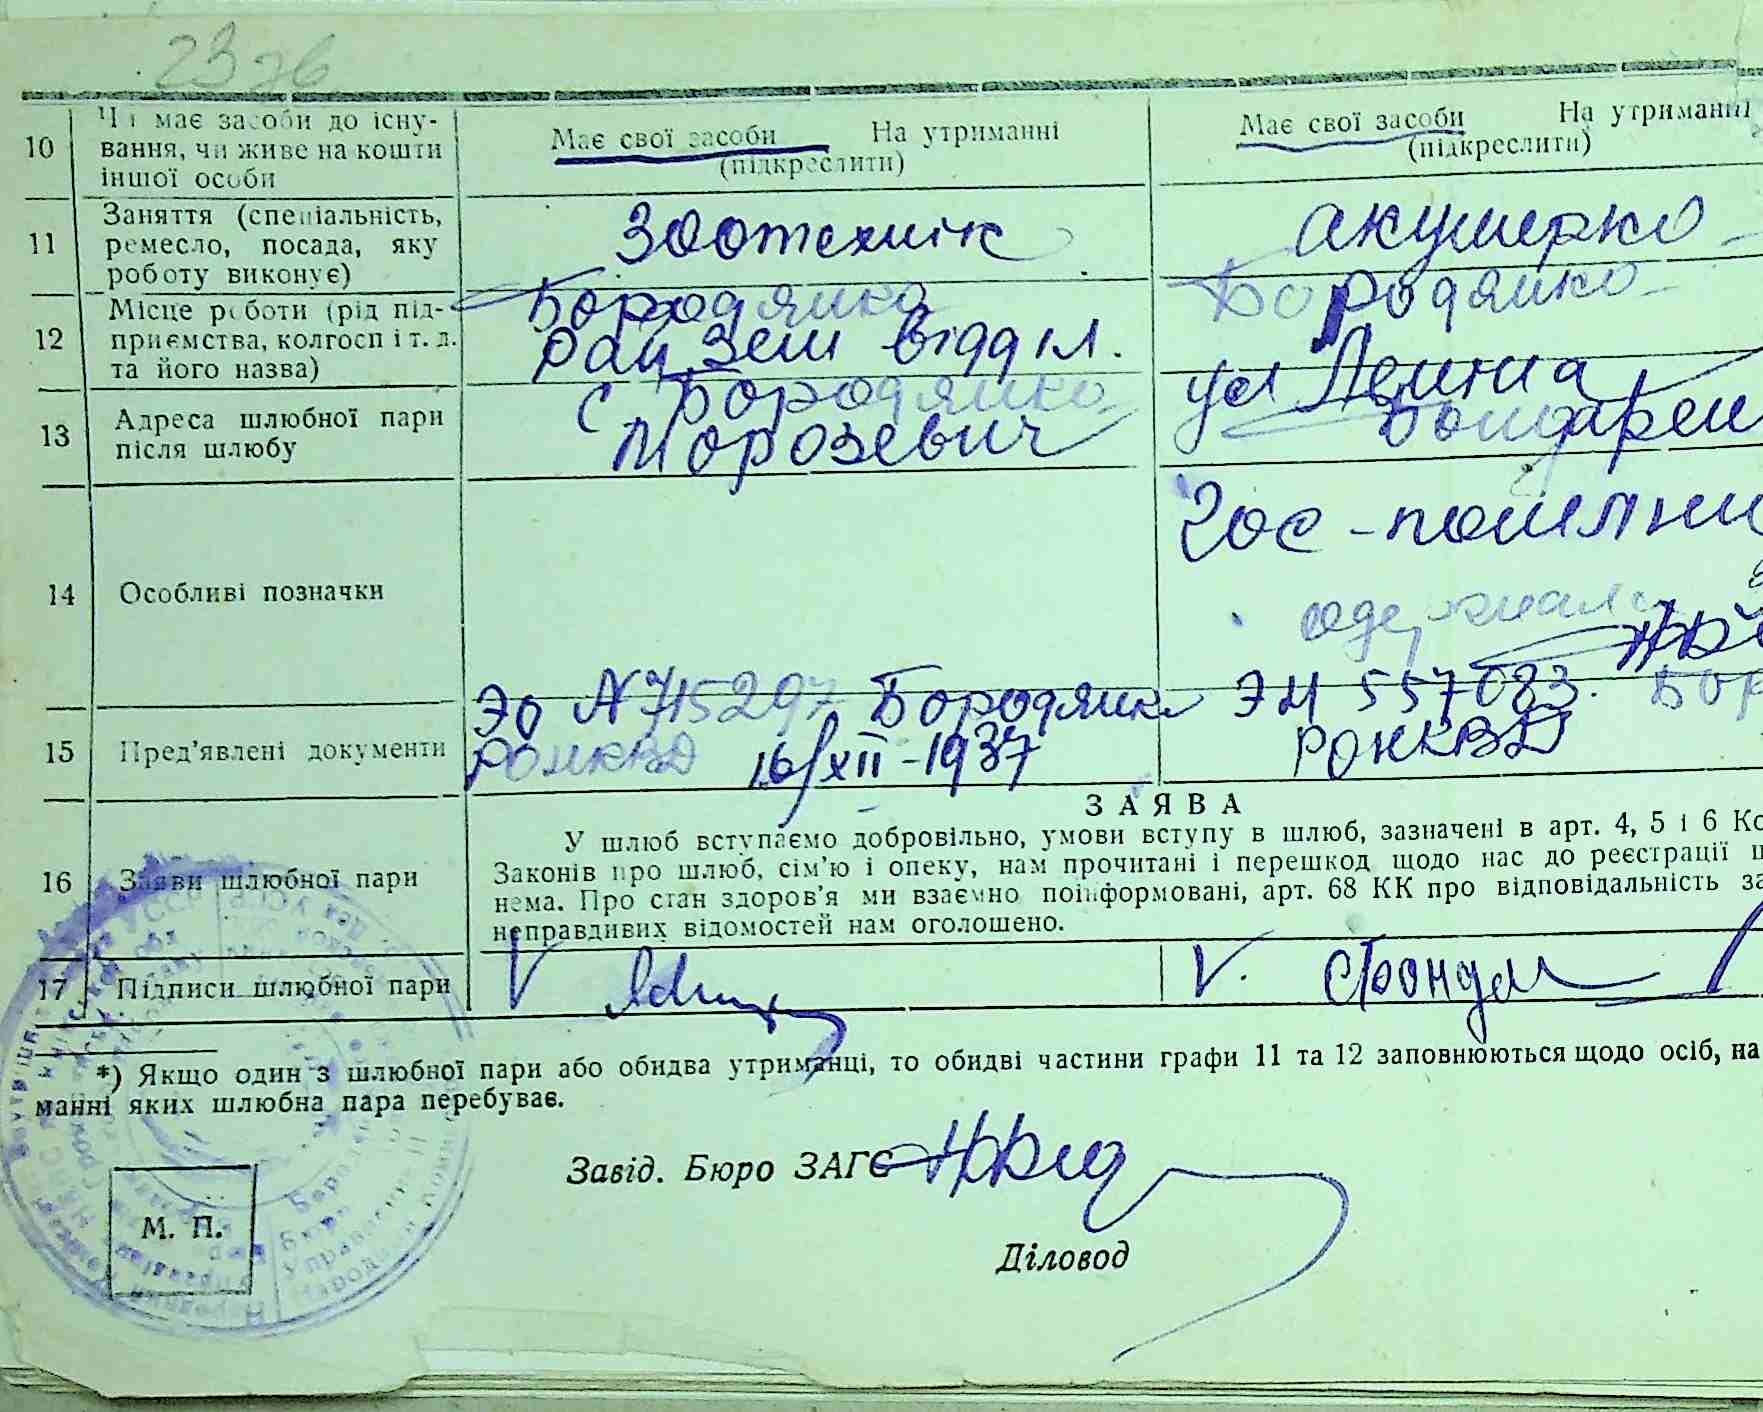 2376
10 Чи має засоби до існу-
вання, чи живе на кошти
іншої особи
Має свої засоби На утриманні
(підкреслити)
Має свої засоби На утриманні
(підкреслити)
11 Заняття (спеціальність,
ремесло, посада, яку
роботу виконує)
Зоотехнік
акушерка
12 Місце роботи (рід під-
приємства, колгосп і т. д.
та його назва)
Бородянка
Рай зем відділ.
Бородянка
13 Адреса шлюбної пари
після шлюбу
с Бородянка
Морозевич
ул Ленина
Бондарен
14 Особливі позначки
Гос-пошлин
15 Пред'явлені документи
ЭО N 715297 Бородянка
РОНКВД 16/XII-1937
ЭИ 557083. Бор
РОНКВД
16 Заяви шлюбної пари
ЗАЯВА
У шлюб вступаємо добровільно, умови вступу в шлюб, зазначені в арт. 4, 5 і 6 Ко
Законів про шлюб, сім'ю і опеку, нам прочитані і перешкод щодо нас до реєстрації ш
нема. Про стан здоров'я ми взаємно поінформовані, арт. 68 КК про відповідальність за
неправдивих відомостей нам оголошено.
17 Підписи шлюбної пари
V
V.
*) Якщо один з шлюбної пари або обидва утриманці, то обидві частини графи 11 та 12 заповнюються щодо осіб, на
манні яких шлюбна пара перебуває.
Завід. Бюро ЗАГС
М. П.
Діловод